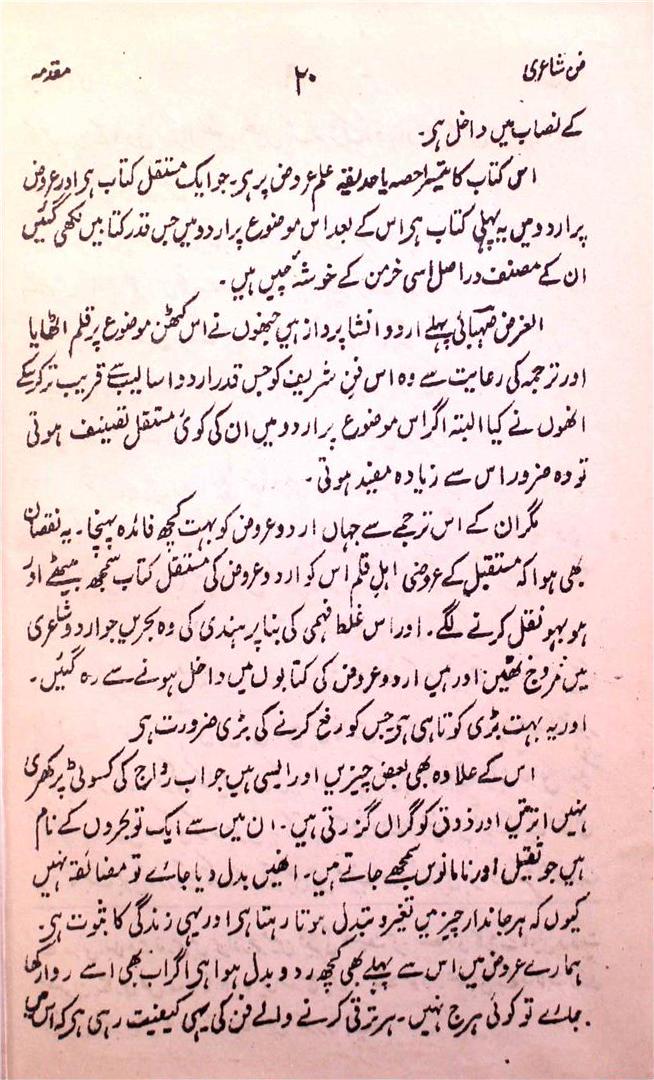 فن شاعری ۲۰ مقدمہ
کے نصاب میں داخل ہی۔
اس کتاب کا تیسرا حصہ یا حدیقہ علم عروض پر ہی۔ جو ایک مستقل کتاب ہی اور عروض
پر اردو میں یہ پہلی کتاب ہی اس کے بعد اس موضوع پر اردو میں جس قدر کتابیں لکھی گئیں
ان کے مصنف در اصل اسی خرمن کے خوشہ چیں ہیں۔
الغرض صہبائی پہلے اردو انشا پرداز ہیں جنھوں نے اس کٹھن موضوع پر قلم اٹھایا
اور ترجمہ کی رعایت سے وہ اس فن شریف کو جس قدر اردو اسالیب سے قریب تر کرسکے
انھوں نے کیا البتہ اگر اس موضوع پر اردو میں ان کی کوئی مستقل تصنیف ہوتی
تو وہ ضرور اس سے زیادہ مفید ہوتی۔
مگر ان کے اس ترجمے سے جہاں اردو عروض کو بہت کچھ فائدہ پہنچا۔ یہ نقصان
بھی ہوا کہ مستقبل کے عروضی اہل قلم اس کو اردو عروض کی مستقل کتاب سمجھ بیٹھے اور
ہو بہو نقل کرنے لگے۔ اور اس غلط فہمی کی بنا پر ہندی کی وہ بحریں جو اردو شاعری
میں مروج تھیں اور ہیں اردو عروض کی کتابوں میں داخل ہونے سے رہ گئیں۔
اور یہ بہت بڑی کوتاہی ہی جس کو رفع کرنے کی بڑی ضرورت ہی
اس کے علاوہ بھی بعض چیزیں اور ایسی ہیں جو اب رواج کی کسوٹی پر کھری
نہیں اترتیں اور ذوق کو گراں گزرتی ہیں۔ ان میں سے ایک تو بحروں کے نام
ہیں جو ثقیل اور نامانوس سمجھے جاتے ہیں۔ انھیں بدل دیا جائے تو مضائقہ نہیں
کیوں کہ ہر جاندار چیز میں تغیر و تبدل ہوتا رہتا ہی اور یہی زندگی کا ثبوت ہی۔
ہمارے عروض میں اس سے پہلے بھی کچھ رد و بدل ہوا ہی اگر اب بھی اسے روا رکھا
جائے تو کوئی ہرج نہیں۔ ہر ترقی کرنے والے فن کی یہی کیفیت رہی ہی کہ اس میں